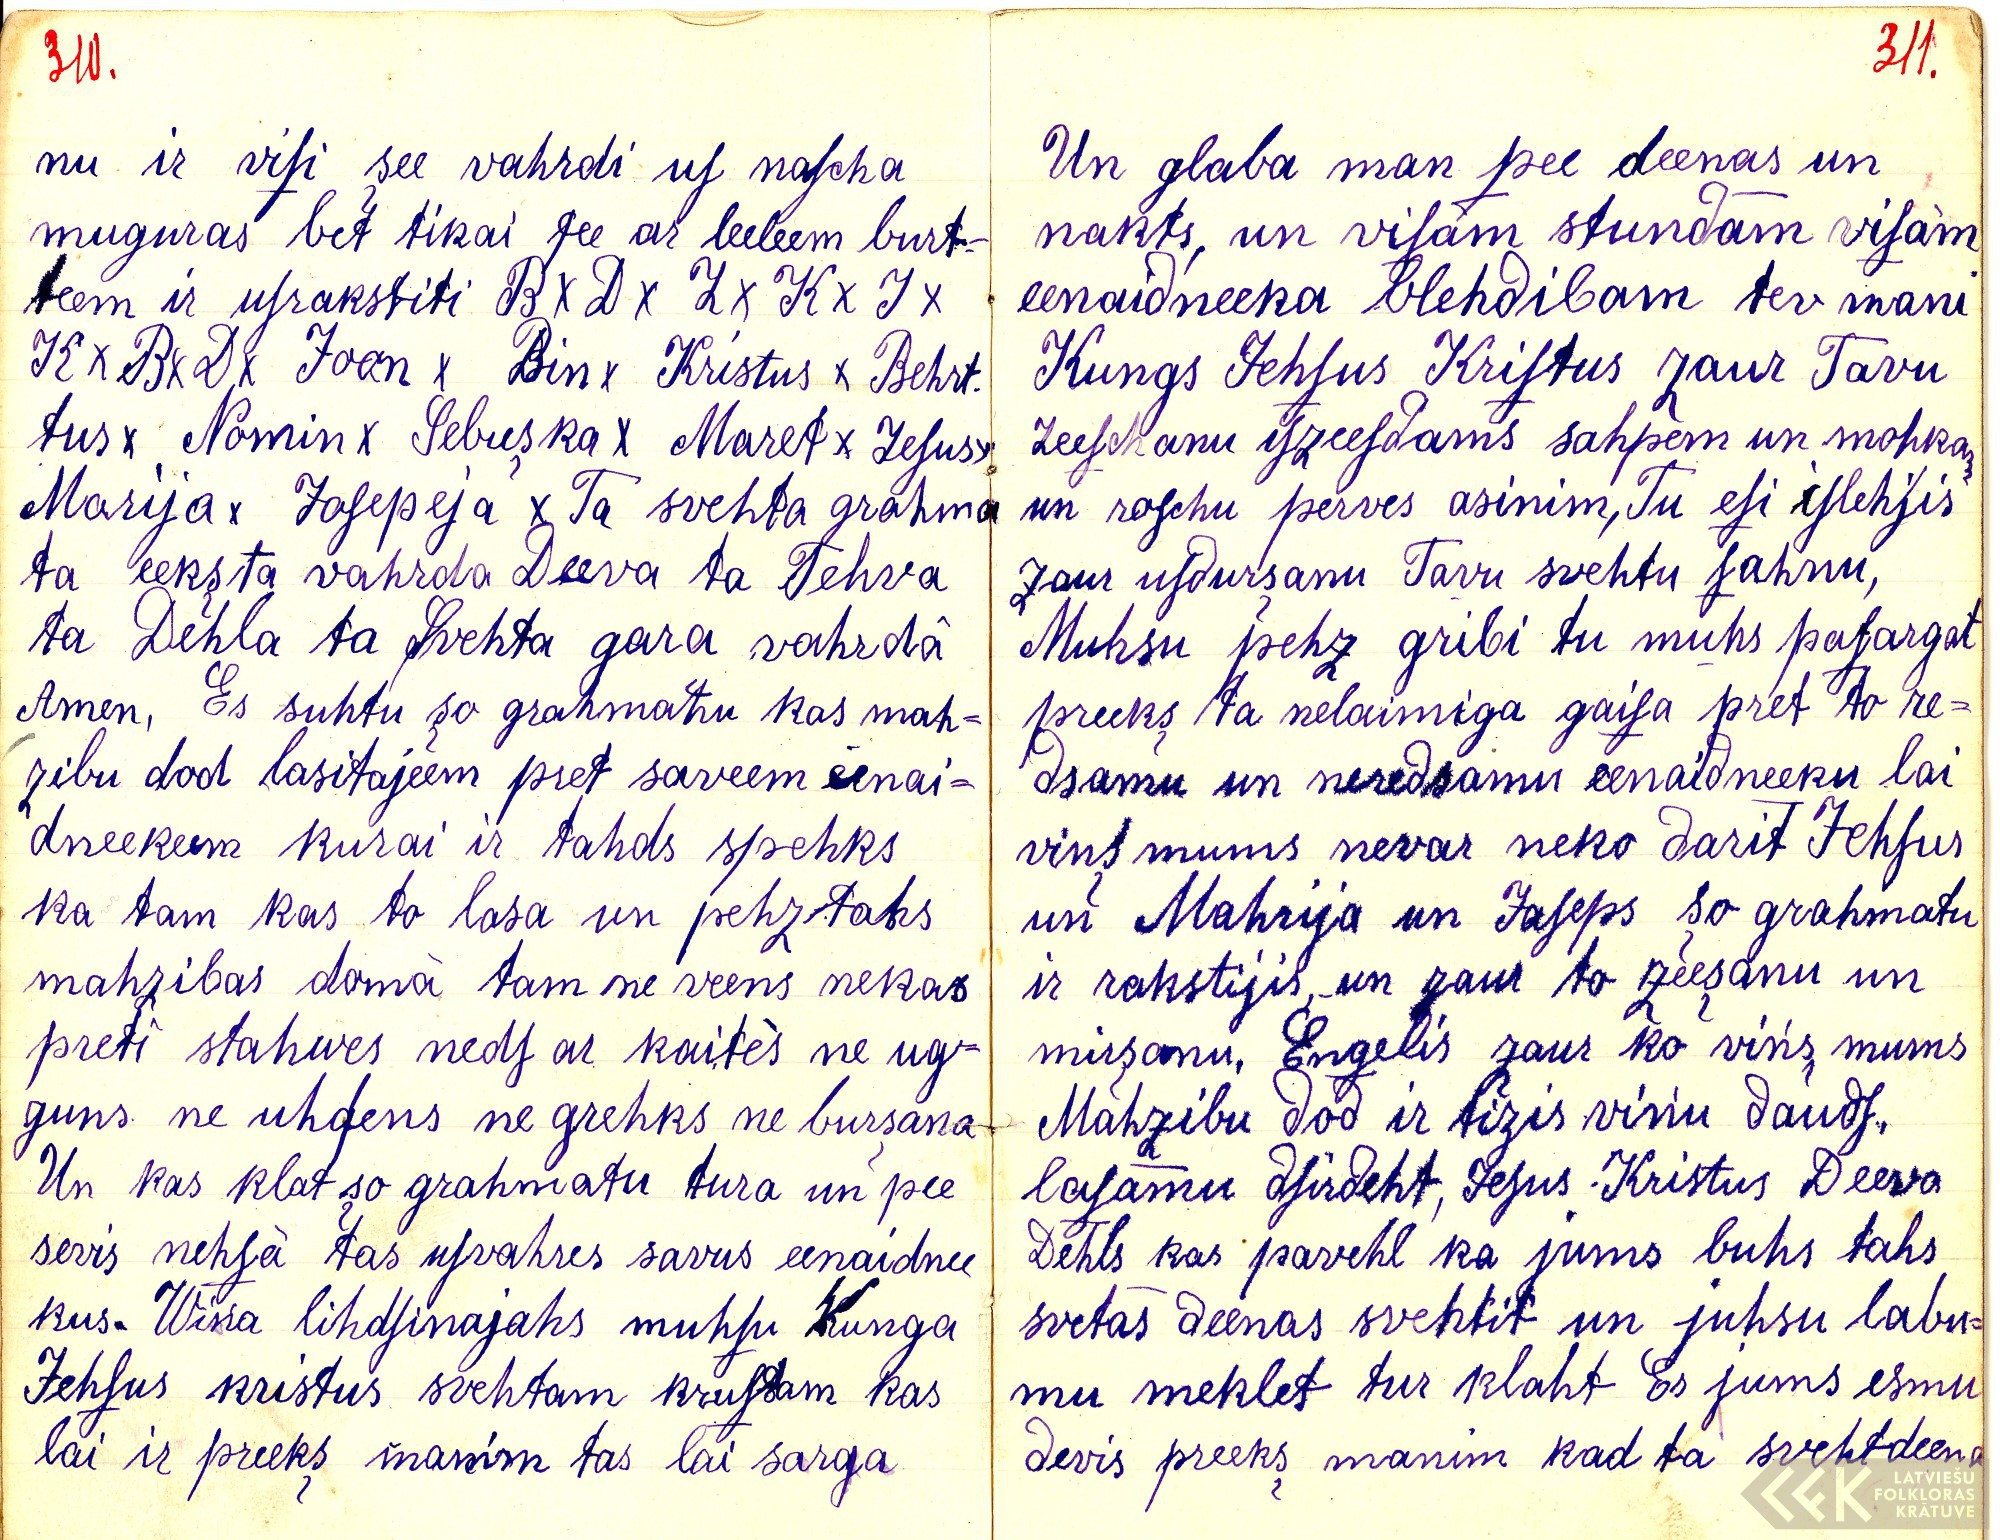 310.
nu ir viſi şee vahrdi uſ naſcha
muguras bet tikai tee ar leeleem burt-
teem ir uſrakstiti B x D x Z x K x J x
K x B x D x Joan x Bin x Kristus x Behrt.
tus x Nomin x Sebuşka x Maret x Jeſus x
Marija x Jaſepeja x Ta svehta grahma
ta eekşta vahrda Deeva ta Tehva
ta Dehla ta Svehta gara vahrdâ
Amen, Es suhtu şo grahmatu kas mah=
zibu dod lasitajeem pret saveem eenai=
dneekeem kurai ir tahds spehks
ka tam kas to lasa un pehz tahs
mahzibas domā tam ne veens nekas
pretî stahwes nedſ ar kaitēs ne ug-
guns ne uhdens ne grehks ne burşana
Un kas klat şo grahmatu tura un pee
sevis nehſā tas uſvahres savus eenaidnee
kus. Wiņa lihdſinajahs muhſu Kunga
Jehſus kristus svehtam kruſtam kas
lai ir preekş manim tas lai sarga
311.
Un glaba man pee deenas un
nakts, un viſām stundām viſām
eenaidneeka blehdibam tev mani
Kungs Jehſus Kriſtus zaur Tavu
zeeſchanu iſzeeſdams sahpem un mohkam
un roſchu perves asinim, Tu eſi iſlehjis
zaur uſdurşanu Tavu svehtu ſahnu,
Muhsu pehz gribi tu muhs paſargat
preekş ta nelaimiga gaiſa pret to re=
dsamu un neredsamu eenaidneeku lai
vinş mums nevar neko darit Jehſus
un Mahrija un Jaſeps şo grahmatu
ir rakstijis, un zaur to zeeşanu un
mirşanu, Engelis zaur ko viņş mums
Mahzibu dod ir tizis viņu daudſ,
laſamu dſirdeht, Jeſus Kristus Deeva
Dehls kas pavehl ka jums buhs tahs
svetās deenas svehtit un juhsu labu=
mu meklet tur klaht Es jums esmu
devis preekş manim kad ta svehtdeena
LATVIEŠU
FOLKLORAS
KRĀTUVE